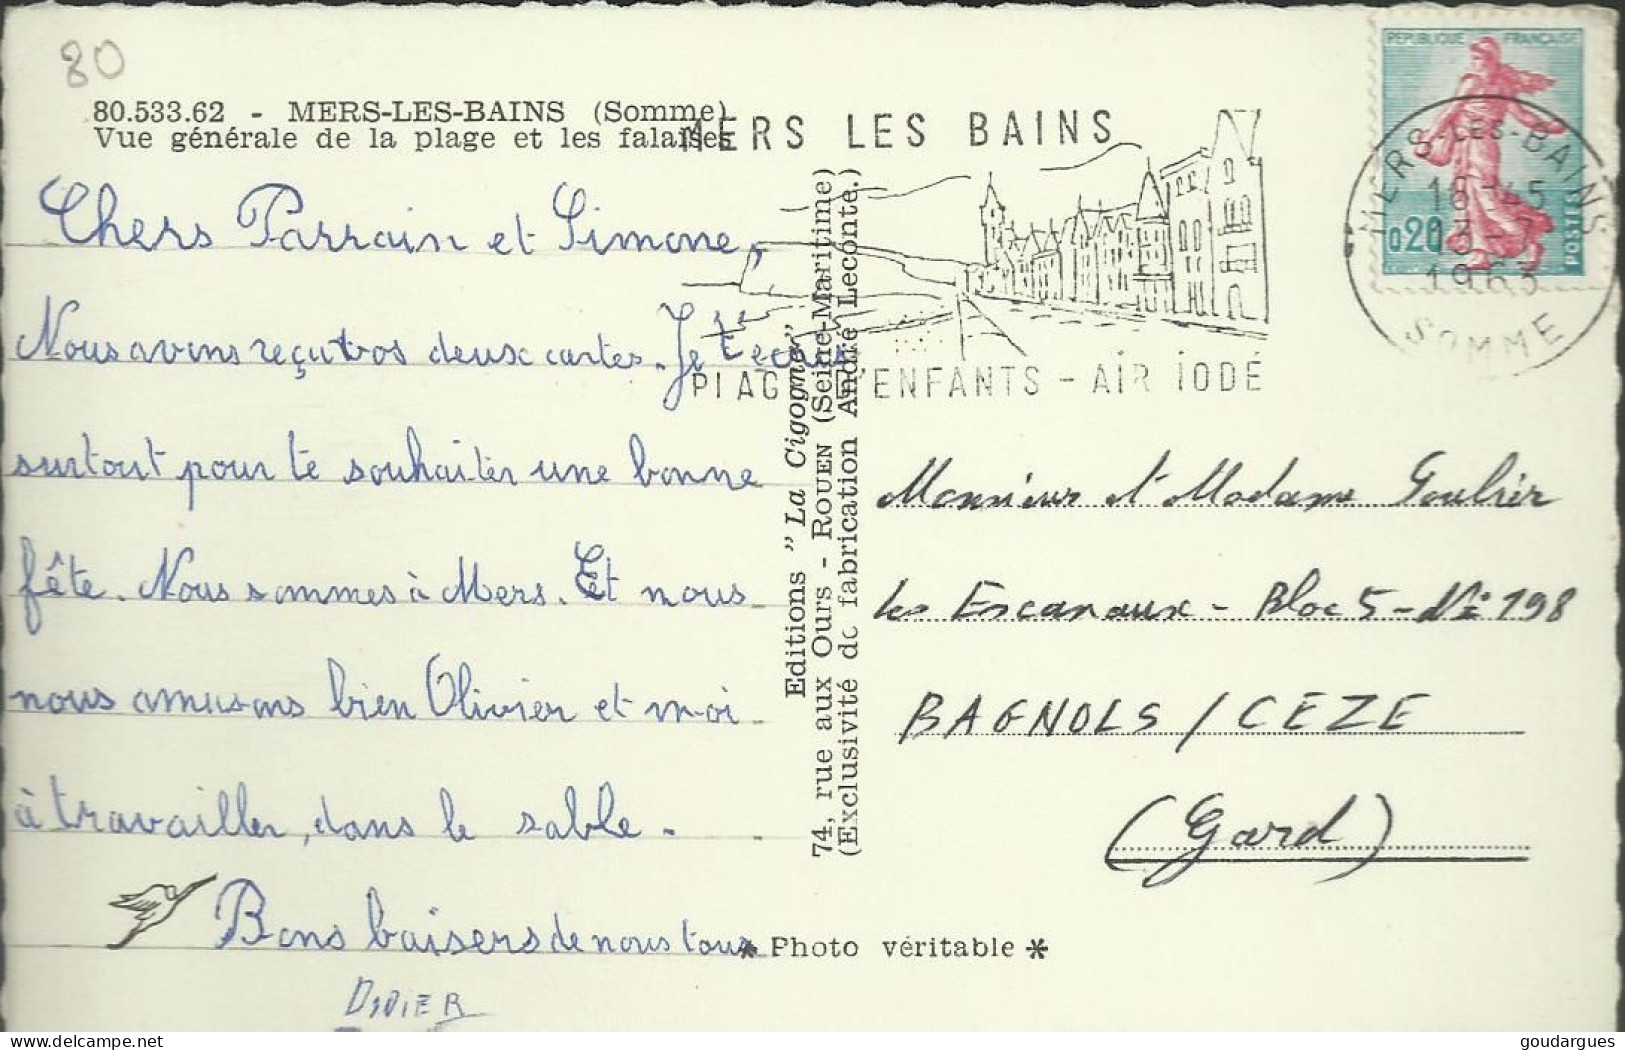 80
80.533.62 - MERS-LES-BAINS (Somme)
Vue générale de la plage et les falaises
MERS LES BAINS
PLAGE D'ENFANTS - AIR IODÉ
REPUBLIQUE FRANÇAISE
0,20
POSTES
MERS-LES-BAINS
16-45
13-7
1963
SOMME
Chers Parrain et Simone,
Nous avons reçu vos deux cartes. Je t'écris
surtout pour te souhaiter une bonne
fête. Nous sommes à Mers. Et nous
nous amusons bien Olivier et moi
à travailler, dans le sable.
Bons baisers de nous tous
DIDIER
Editions "La Cigogne"
74, rue aux Ours - ROUEN (Seine-Maritime)
(Exclusivité de fabrication André Leconte.)
Monsieur et Madame Goulier
les Escanaux - Bloc 5 - N° 198
BAGNOLS / CEZE
(Gard)
* Photo véritable *
Delcampe.net
goudargues